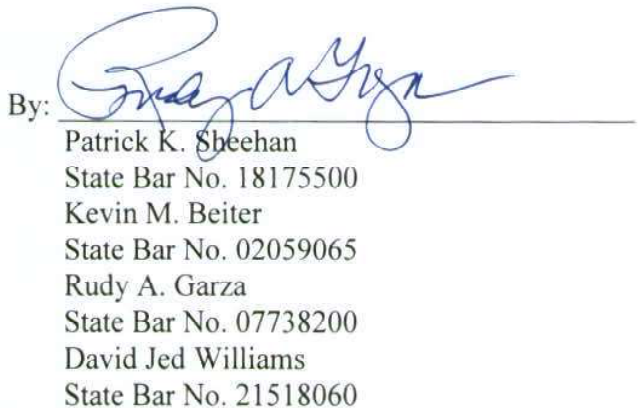 By: Rudy A Garza
Patrick K. Sheehan
State Bar No. 18175500
Kevin M. Beiter
State Bar No. 02059065
Rudy A. Garza
State Bar No. 07738200
David Jed Williams
State Bar No. 21518060